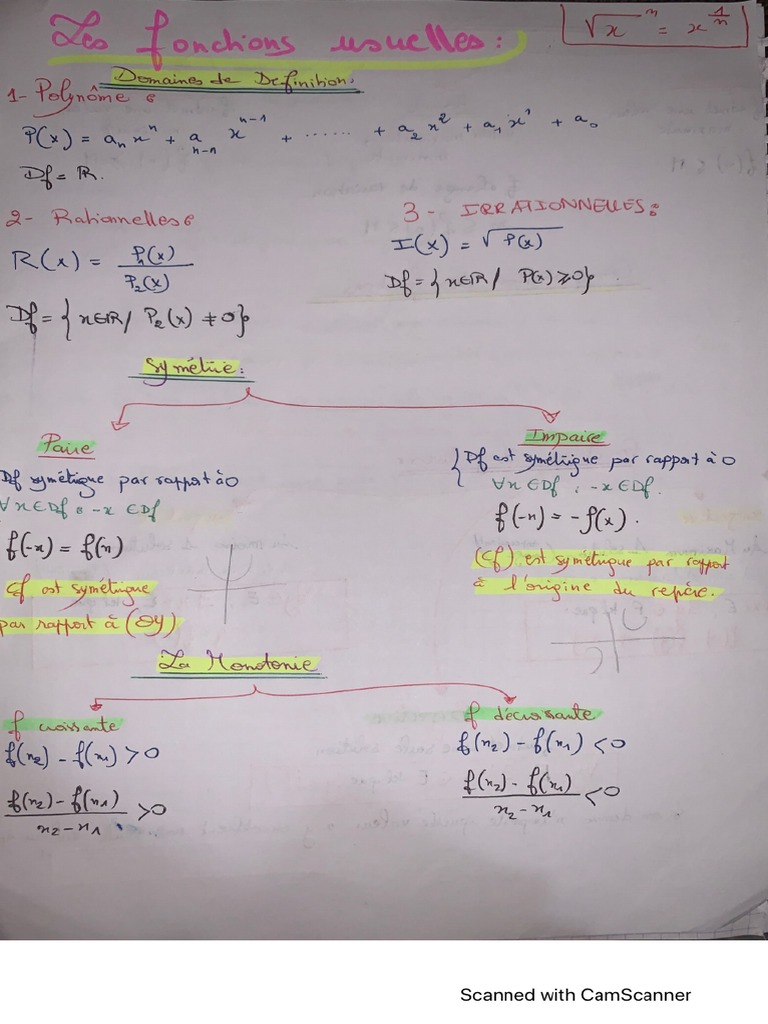 Les fonctions usuelles :
√x ^n = x^(1/n)
Domaines de Definition:
1- Polynôme :
P(x) = aₙxⁿ + a_(n-n) x^(n-1) + ...... + a₂x² + a₁x¹ + a₀
Df = ℝ.
2- Rationnelles :
R(x) = P₁(x) / P₂(x)
Df = { x∈ℝ / P₂(x) ≠ 0 }
3 - IRRATIONNELLES :
I(x) = √P(x)
Df = { x∈ℝ / P(x) ≥ 0 }
Symétrie :
Paire
Df symétrique par rapport à 0
∀x∈Df : -x ∈Df
f(-x) = f(x)
Cf est symétrique
par rapport à (OY)
Impaire
{ Df est symétrique par rapport à 0
∀x∈Df : -x∈Df.
f(-x) = -f(x).
(Cf) est symétrique par rapport
à l'origine du repère.
La Monotonie
f croissante
f(x₂) - f(x₁) > 0
f(x₂) - f(x₁) / x₂ - x₁ > 0
f décroissante
f(x₂) - f(x₁) < 0
f(x₂) - f(x₁) / x₂ - x₁ < 0
Scanned with CamScanner